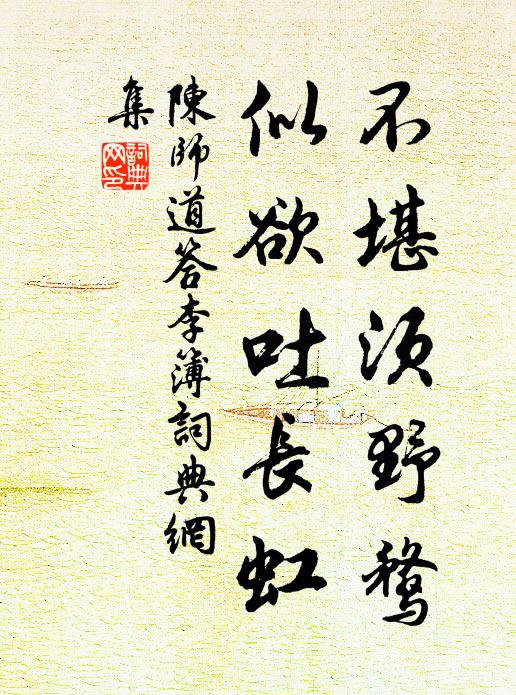 不堪須野鶩
似欲吐長虹
陳師道答李簿詞典網
集
詞典
网印